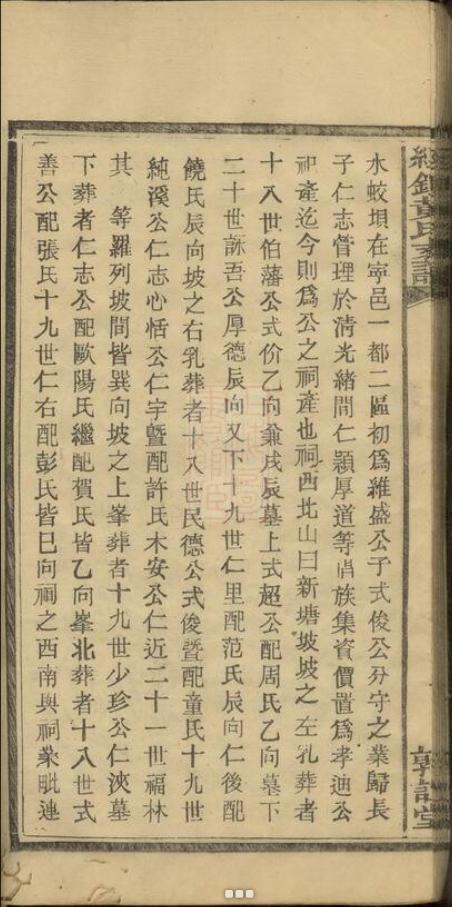 經鏗黃氏支譜
敦誼堂
水蛟埧在寧邑一都二區初爲維盛公子式俊公分守之業歸長
子仁志管理於清光緒間仁穎厚道等唱族集資價置爲孝迪公
祀產迄今則爲公之祠產也祠西北山曰新塘坡坡之左乳葬者
十八世伯藩公式价乙向兼戌辰墓上式超公配周氏乙向墓下
二十世詠吾公厚德辰向又下十九世仁里配范氏辰向仁後配
饒氏辰向坡之右乳葬者十八世民德公式俊暨配童氏十九世
純溪公仁志心恬公仁宇暨配許氏木安公仁近二十一世福林
其 等羅列坡間皆巽向坡之上峯葬者十九世少珍公仁浹墓
下葬者仁志公配歐陽氏繼配賀氏皆乙向峯北葬者十八世式
善公配張氏十九世仁右配彭氏皆巳向祠之西南與祠業毗連